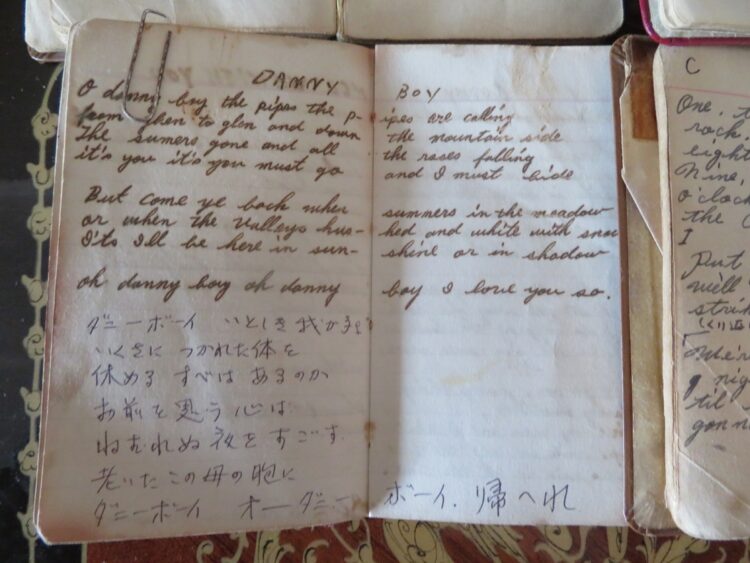 DANNY BOY
O danny boy the pipes the p- ipes are calling
from ghen to glen and down the mountain side
The sumers gone and all the roses falling
it's you it's you must go and I must bide
But come ye back when summers in the meadow
or when the valleys hus- hed and white with snow
I'ts I'll be here in sun- shine or in shadow
oh danny boy oh danny boy I love you so.
ダニーボーイ いとしき我が子を
いくさに つかれた体を
休める すべは あるのか
お前を思う心は
ねむれぬ夜をすごす
老いたこの母の胸に
ダニーボーイ オーダニー ボーイ. 帰へれ
C
One, t
rock
eight
Nine,
o'cloc
the
I
Put
we'll
strik
(くり返
We're
nig
'til
gon n